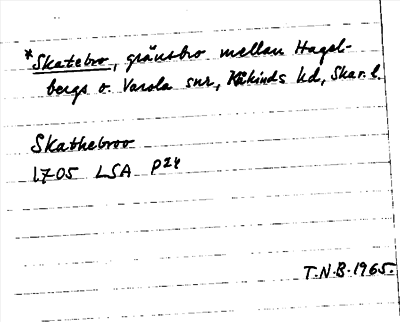 *Skatebro, gränsbro mellan Hagel-
bergs o. Varola snr, Kåkinds hd, Skar. l.
Skathebroo
1705 LSA P24
T.N.B. 1965.